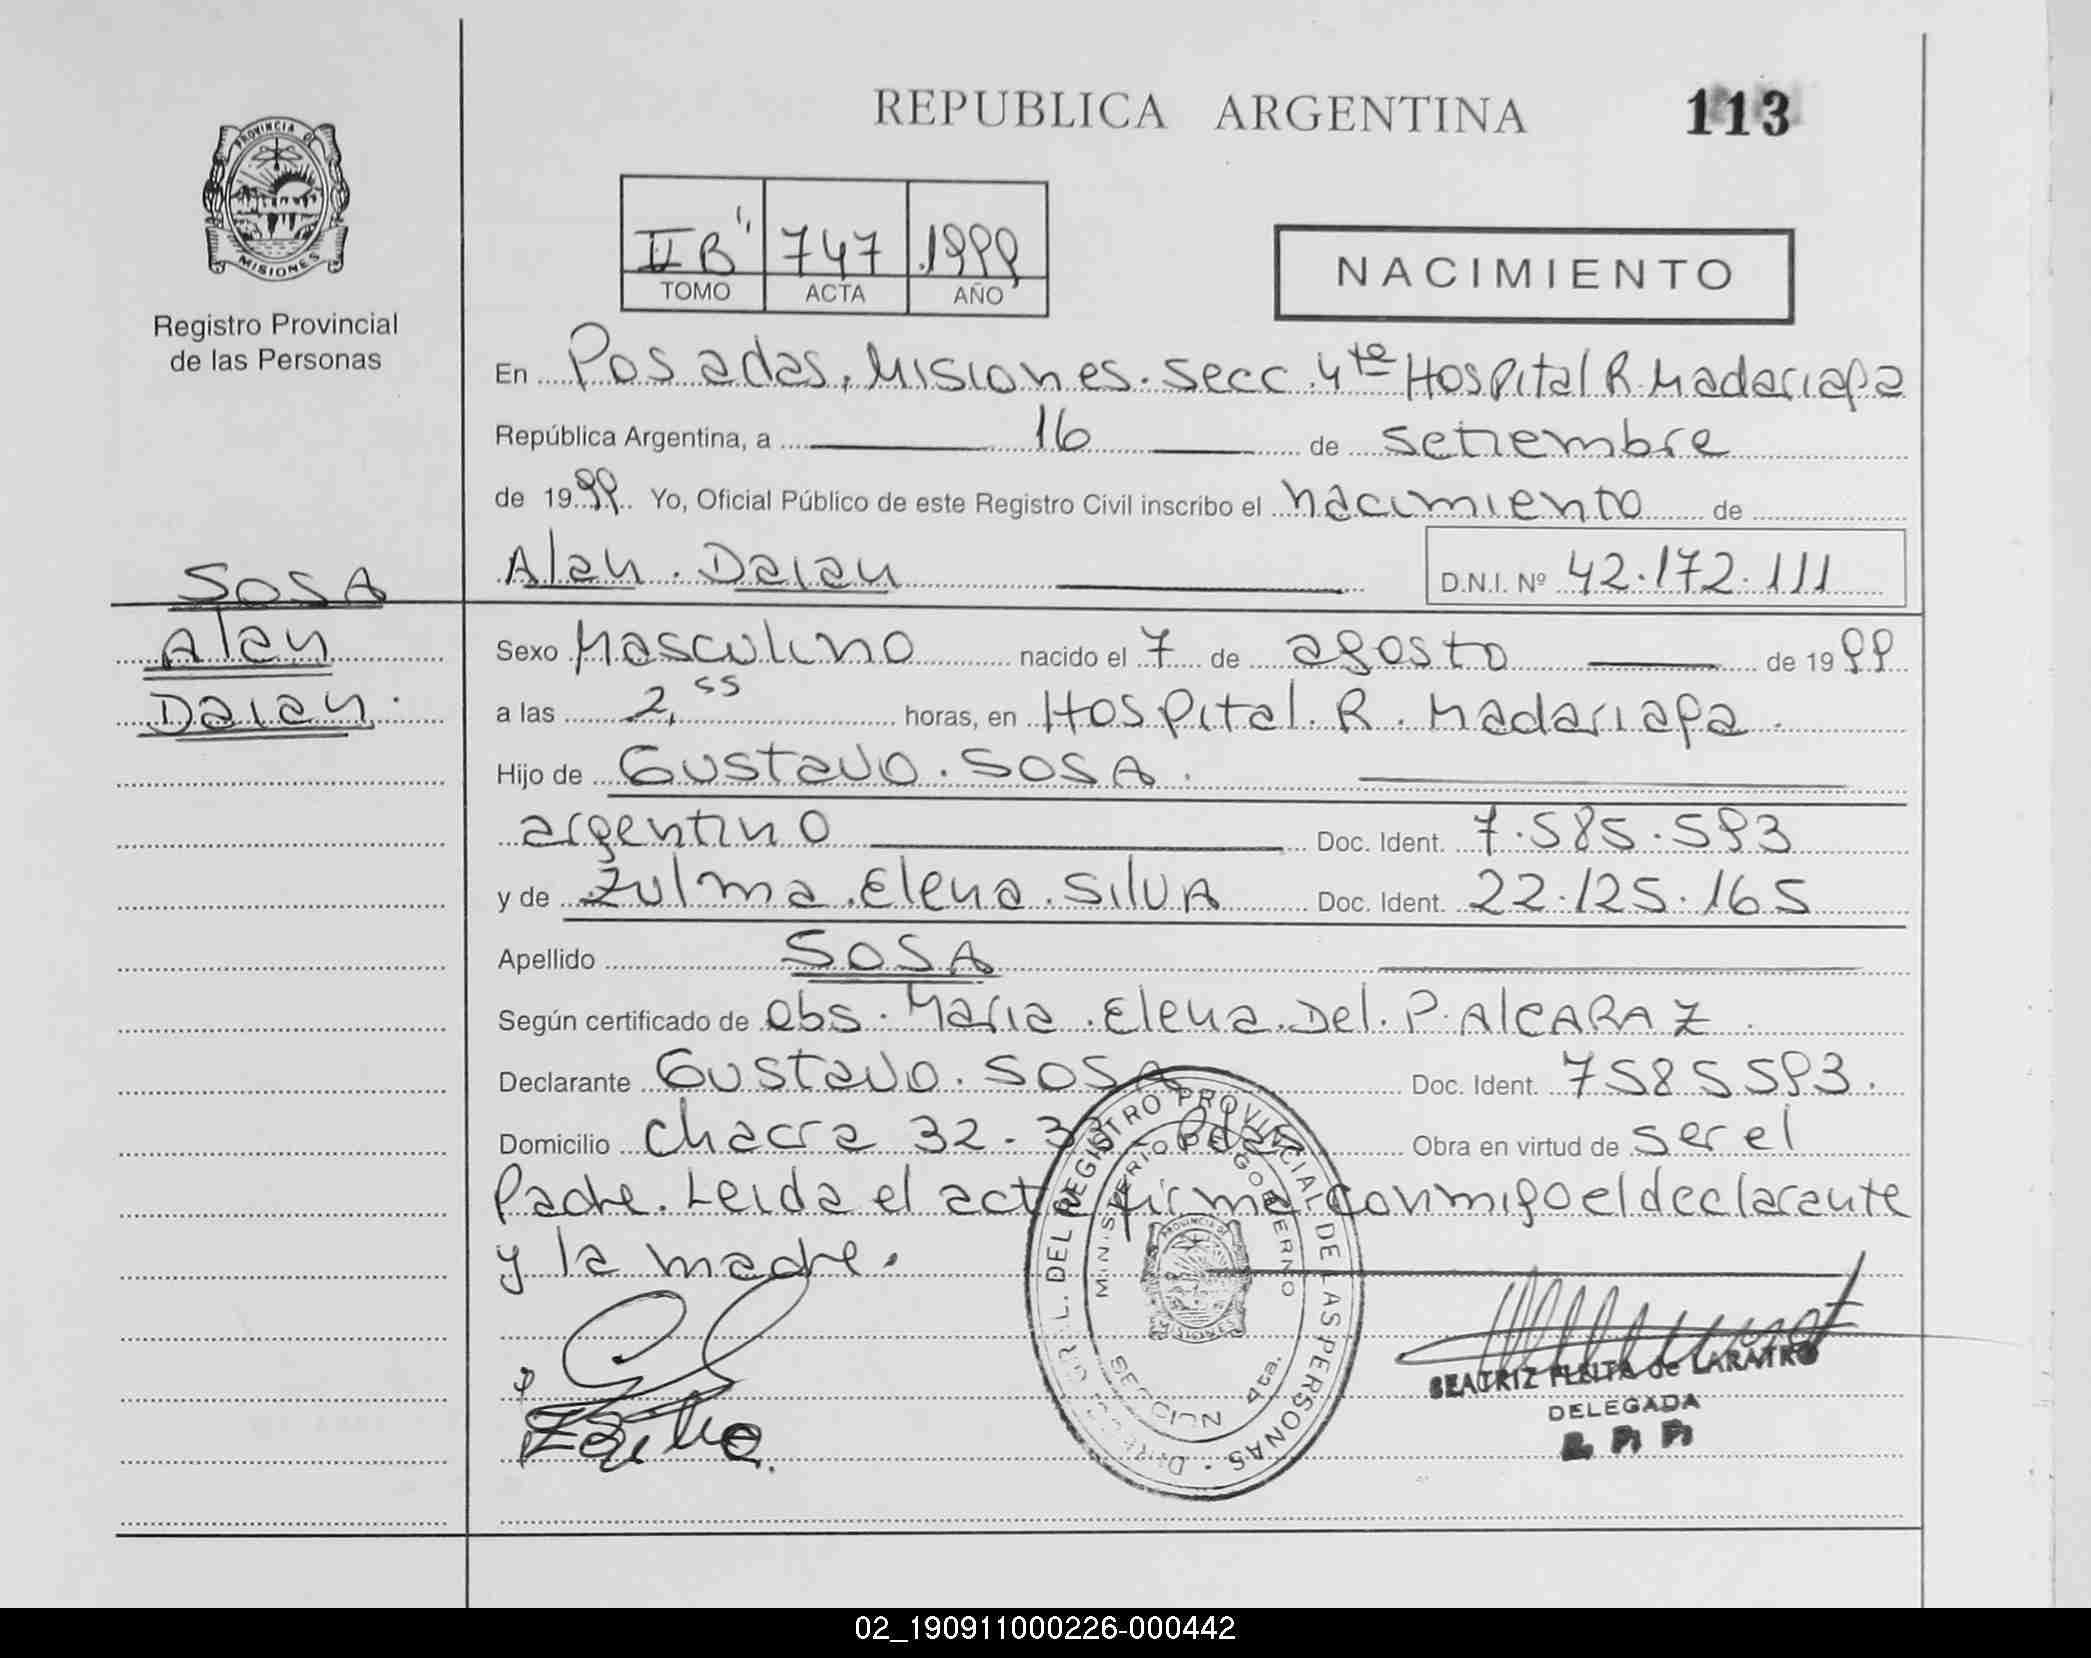 REPUBLICA ARGENTINA 113
PROVINCIA DE
MISIONES
Registro Provincial
de las Personas
II B" 747 1999
TOMO ACTA AÑO
NACIMIENTO
En Posadas, Misiones. Secc. 4ta Hospital R. Madariaga
República Argentina, a 16 de setiembre
de 1999 Yo, Oficial Público de este Registro Civil inscribo el nacimiento de
Alan. Daian D.N.I. Nº 42.172.111
SOSA
Alan
Daian.
Sexo Masculino nacido el 7 de agosto de 1999
a las 2,55 horas, en Hospital. R. Madariaga.
Hijo de Gustavo. SOSA.
argentino Doc. Ident. 7.585.593
y de Zulma. Elena. SilvA Doc. Ident. 22.125.165
Apellido SOSA
Según certificado de obs. Maria. Elena. Del. P. AlCARAZ.
Declarante Gustavo. SOSA Doc. Ident. 7585593.
Domicilio Chacra 32-33 Pdas Obra en virtud de ser el
Padre. Leida el acta firma conmigo el declarante
y la madre.
DEL REGISTRO PROVINCIAL DE LAS PERSONAS
MINISTERIO DE GOBIERNO
PROVINCIA DE
MISIONES
SECCION 4ta.
BEATRIZ FLEITA de LARATRO
DELEGADA
02_190911000226-000442